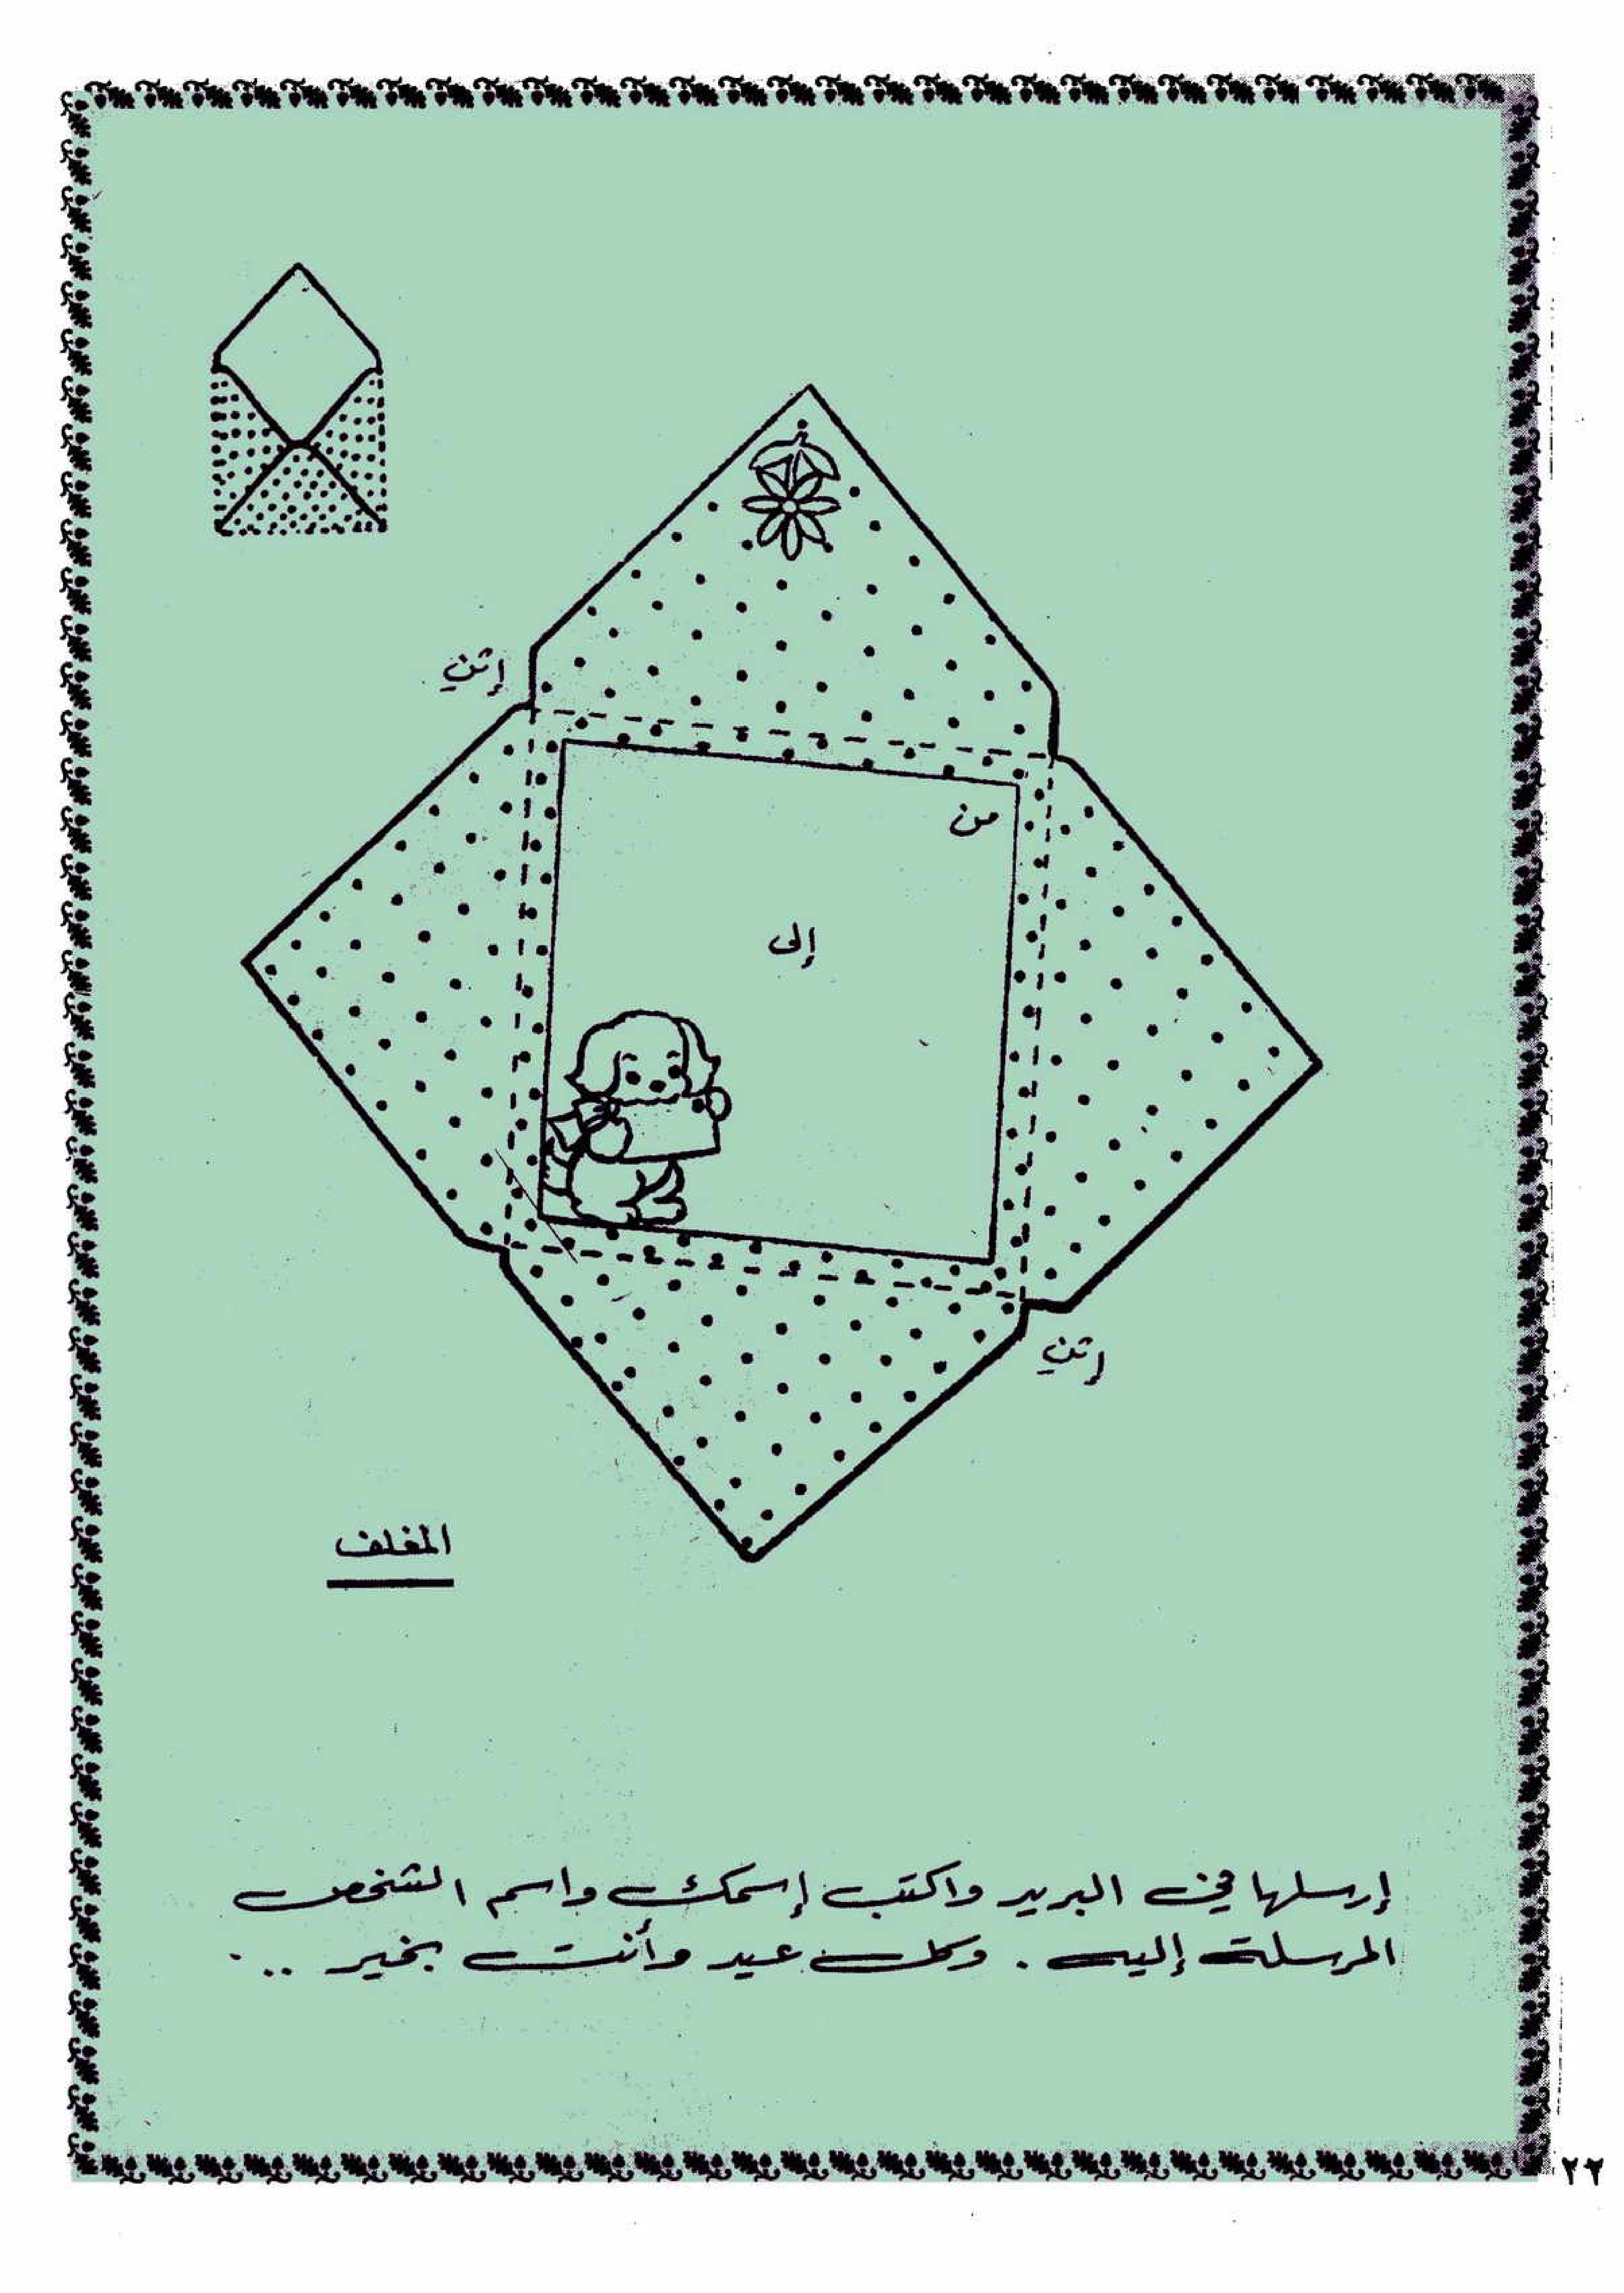 إثن
من
إلى
إثن
المغلف
إرسلها في البريد واكتب إسمك واسم الشخص
المرسلة إليه . وكل عيد وأنت بخير ...
٢٢